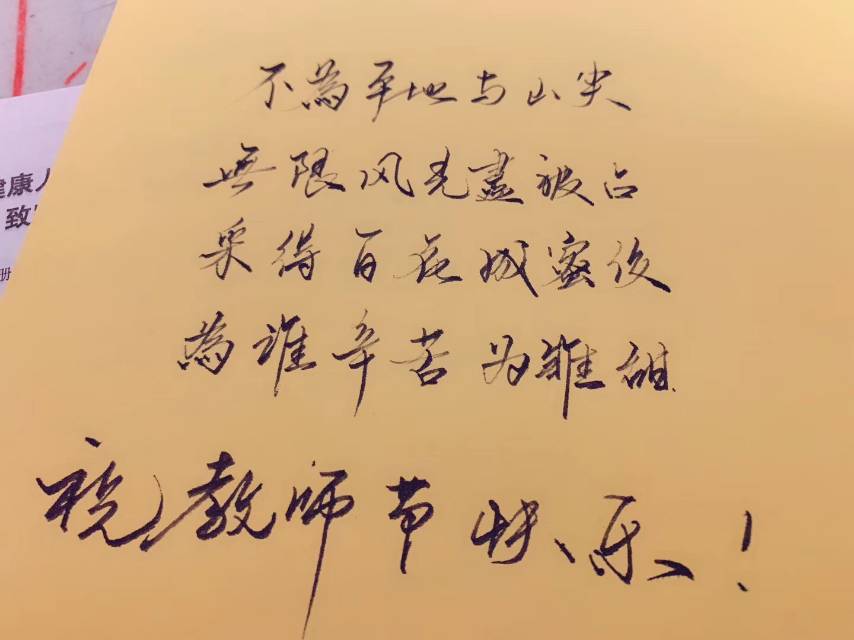 建康人
致
册
不為平地与山尖
無限风光盡被占
采得百花成蜜後
為谁辛苦为谁甜
祝教师节快乐！